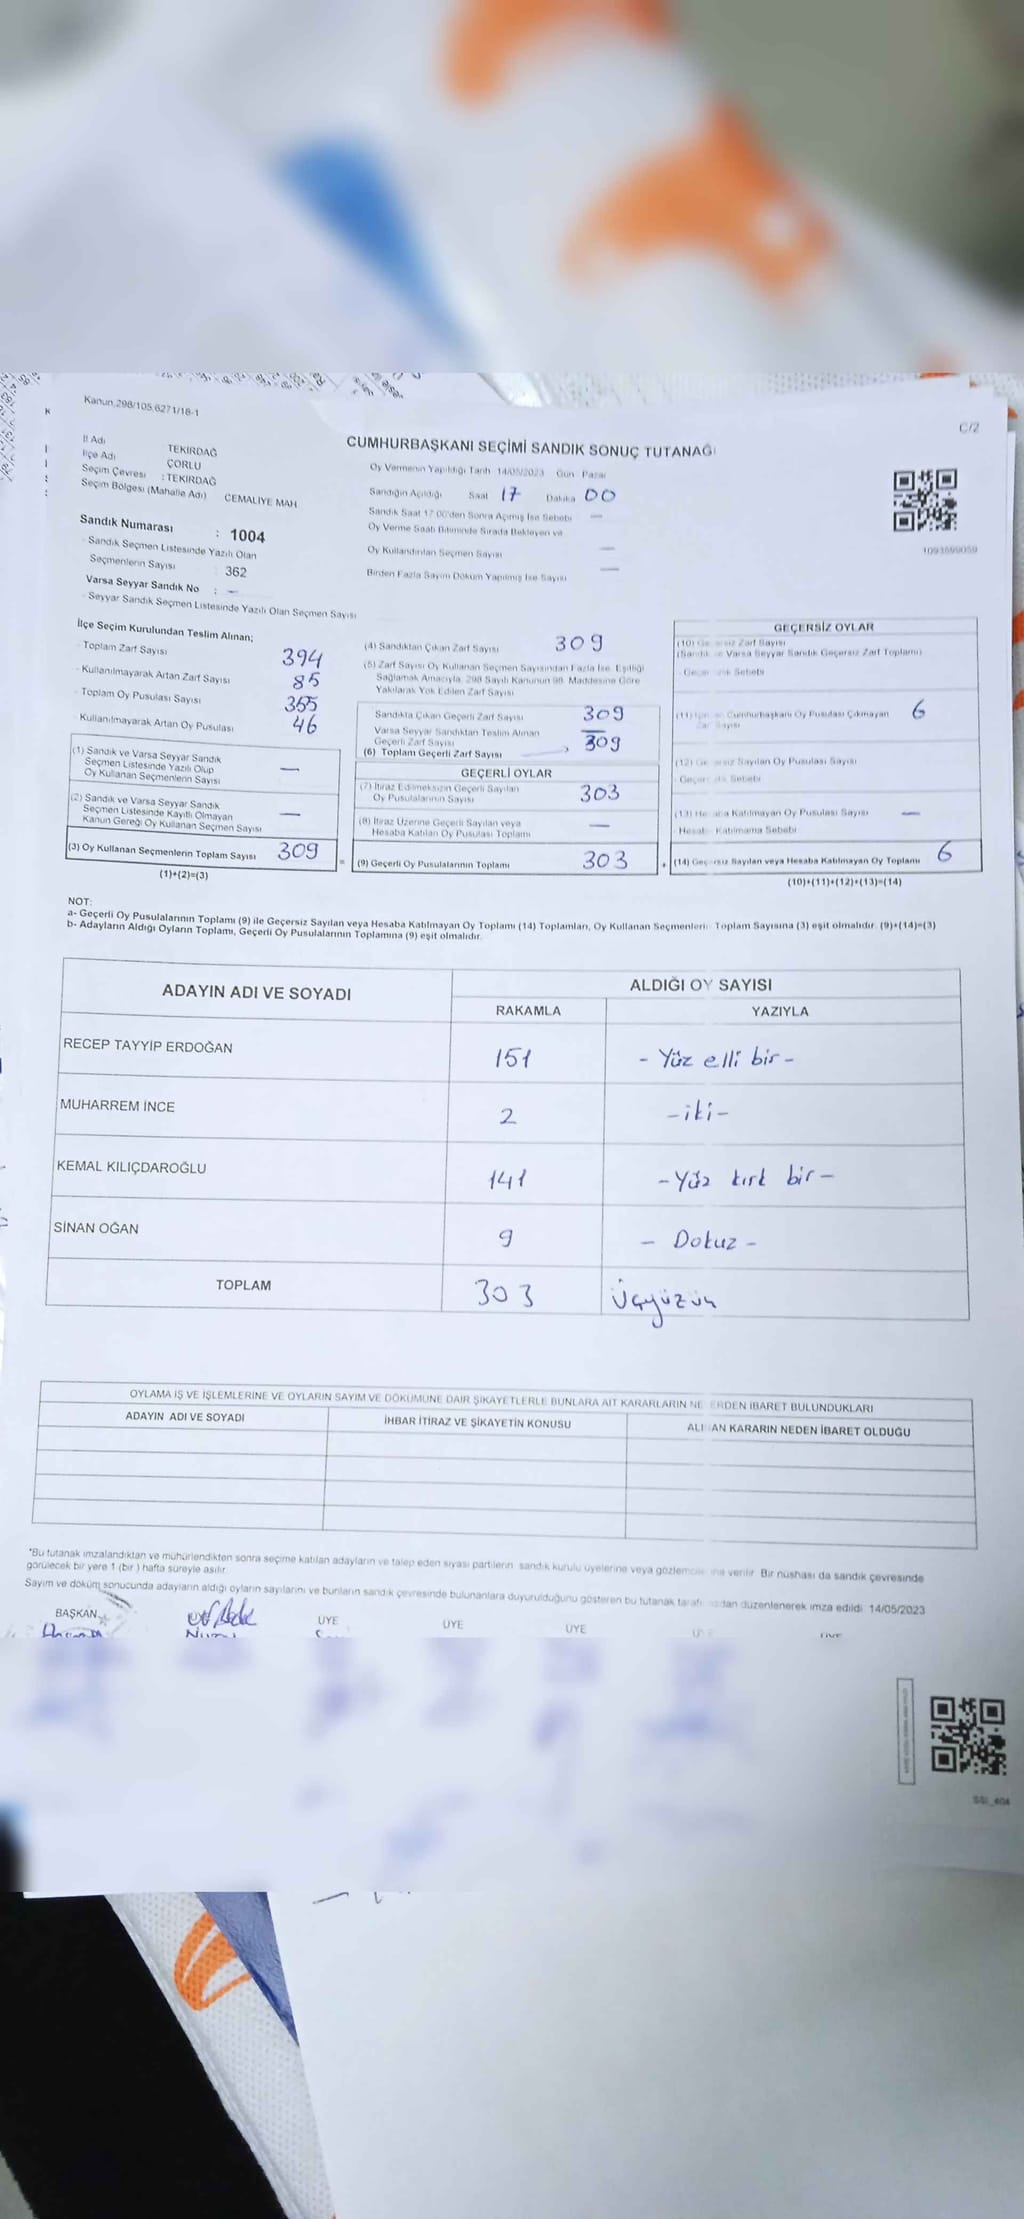 Kanun.298/105,6271/18-1
C/2
CUMHURBAŞKANI SEÇİMİ SANDIK SONUÇ TUTANAĞI
İl Adı TEKİRDAĞ
İlçe Adı ÇORLU
Seçim Çevresi : TEKİRDAĞ
Seçim Bölgesi (Mahalle Adı) CEMALİYE MAH
Sandık Numarası : 1004
Sandık Seçmen Listesinde Yazılı Olan
Seçmenlerin Sayısı : 362
Varsa Seyyar Sandık No : —
Seyyar Sandık Seçmen Listesinde Yazılı Olan Seçmen Sayısı
Oy Vermenin Yapıldığı Tarih 14/05/2023 Gün Pazar
Sandığın Açıldığı Saat 17 Dakika 00
Sandık Saat 17.00'den Sonra Açılmış İse Sebebi —
Oy Verme Saati Bitiminde Sırada Bekleyen ve
Oy Kullandırılan Seçmen Sayısı —
Birden Fazla Sayım Döküm Yapılmış İse Sayısı —
1093599059
İlçe Seçim Kurulundan Teslim Alınan;
- Toplam Zarf Sayısı 394
- Kullanılmayarak Artan Zarf Sayısı 85
- Toplam Oy Pusulası Sayısı 355
- Kullanılmayarak Artan Oy Pusulası 46
(1) Sandık ve Varsa Seyyar Sandık
Seçmen Listesinde Yazılı Olup
Oy Kullanan Seçmenlerin Sayısı —
(2) Sandık ve Varsa Seyyar Sandık
Seçmen Listesinde Kayıtlı Olmayan
Kanun Gereği Oy Kullanan Seçmen Sayısı —
(3) Oy Kullanan Seçmenlerin Toplam Sayısı 309
(1)+(2)=(3)
(4) Sandıktan Çıkan Zarf Sayısı 309
(5) Zarf Sayısı Oy Kullanan Seçmen Sayısından Fazla İse, Eşitliği
Sağlamak Amacıyla, 298 Sayılı Kanunun 98. Maddesine Göre
Yakılarak Yok Edilen Zarf Sayısı
Sandıkta Çıkan Geçerli Zarf Sayısı 309
Varsa Seyyar Sandıktan Teslim Alınan
Geçerli Zarf Sayısı —
(6) Toplam Geçerli Zarf Sayısı 309
GEÇERLİ OYLAR
(7) İtiraz Edilmeksizin Geçerli Sayılan
Oy Pusulalarının Sayısı 303
(8) İtiraz Üzerine Geçerli Sayılan veya
Hesaba Katılan Oy Pusulası Toplamı —
= (9) Geçerli Oy Pusulalarının Toplamı 303
GEÇERSİZ OYLAR
(10) Zarf Sayısı
(Sandık Varsa Seyyar Sandık Geçersiz Zarf Toplamı)
Sebebi
(11) Cumhurbaşkanı Oy Pusulası Çıkmayan 6
Sayısı
(12) Sayılan Oy Pusulası Sayısı
Sebebi
(13) Katılmayan Oy Pusulası Sayısı —
Katılmama Sebebi
+ (14) Sayılan veya Hesaba Katılmayan Oy Toplamı 6
(10)+(11)+(12)+(13)=(14)
NOT:
a- Geçerli Oy Pusulalarının Toplamı (9) ile Geçersiz Sayılan veya Hesaba Katılmayan Oy Toplamı (14) Toplamları, Oy Kullanan Seçmenlerin Toplam Sayısına (3) eşit olmalıdır. (9)+(14)=(3)
b- Adayların Aldığı Oyların Toplamı, Geçerli Oy Pusulalarının Toplamına (9) eşit olmalıdır.
ADAYIN ADI VE SOYADI ALDIĞI OY SAYISI
RAKAMLA YAZIYLA
RECEP TAYYİP ERDOĞAN 151 - Yüz elli bir -
MUHARREM İNCE 2 -iki-
KEMAL KILIÇDAROĞLU 141 - Yüz kırk bir -
SİNAN OĞAN 9 - Dokuz -
TOPLAM 303 Üçyüzüç
OYLAMA İŞ VE İŞLEMLERİNE VE OYLARIN SAYIM VE DÖKÜMÜNE DAİR ŞİKAYETLERLE BUNLARA AİT KARARLARIN NE ERDEN İBARET BULUNDUKLARI
ADAYIN ADI VE SOYADI İHBAR İTİRAZ VE ŞİKAYETİN KONUSU ALI AN KARARIN NEDEN İBARET OLDUĞU
*Bu tutanak imzalandıktan ve mühürlendikten sonra seçime katılan adayların ve talep eden siyasi partilerin sandık kurulu üyelerine veya gözlemcilerine verilir. Bir nüshası da sandık çevresinde
görülecek bir yere 1 (bir) hafta süreyle asılır.
Sayım ve döküm sonucunda adayların aldığı oyların sayılarını ve bunların sandık çevresinde bulunanlara duyurulduğunu gösteren bu tutanak tarafımızdan düzenlenerek imza edildi. 14/05/2023
BAŞKAN ÜYE ÜYE ÜYE ÜYE ÜYE